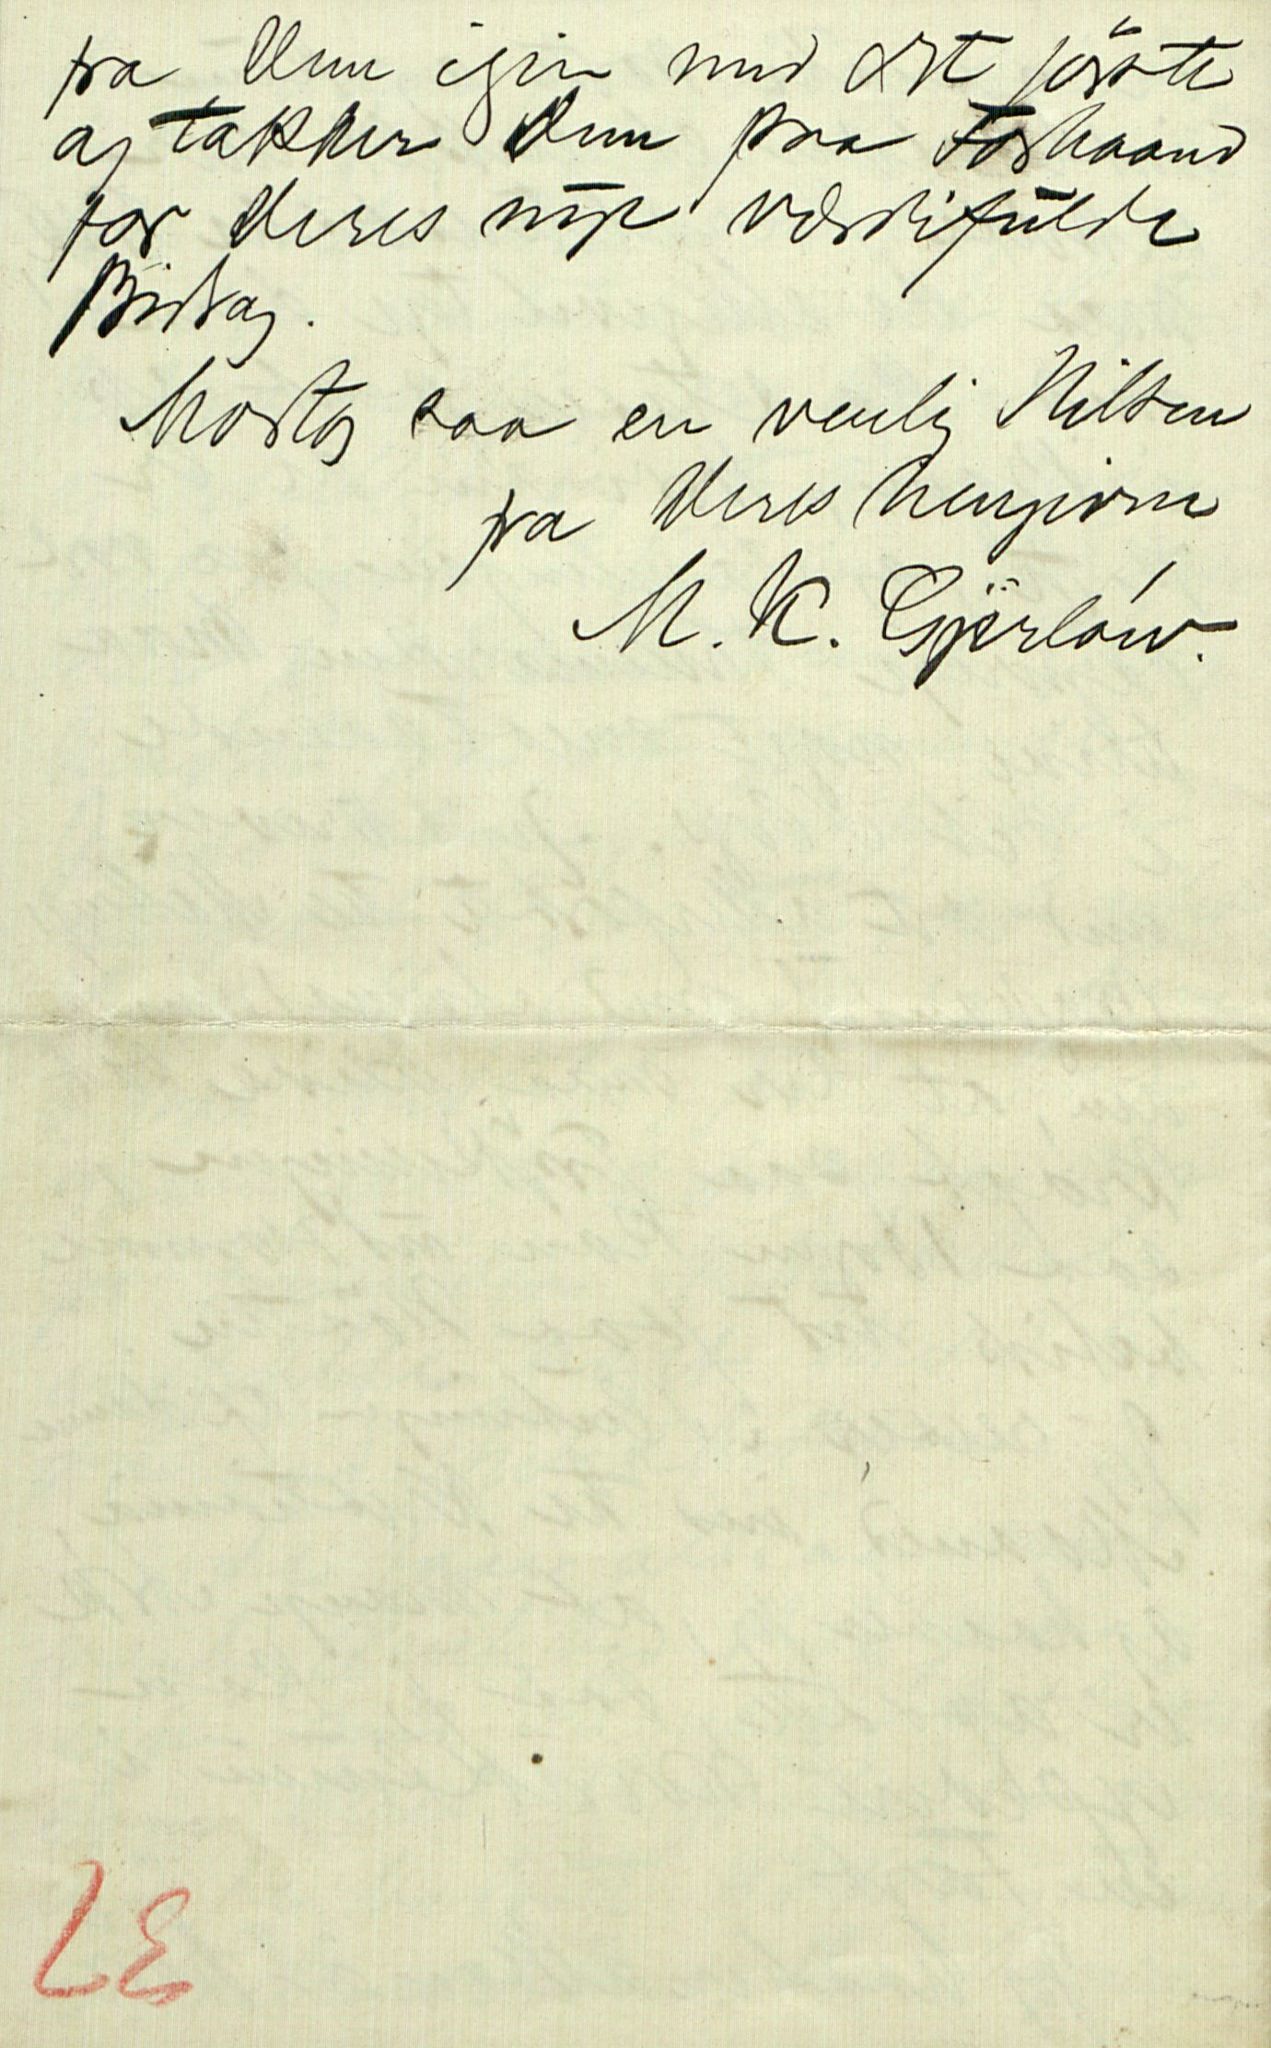 fra Dem igjen med det förste
og takker Dem paa Forhaand
for Deres nye værdifulde
Bidrag.
Modtag saa en venlig Hilsen
fra Deres hengivne
M. K. Gjerlöw.